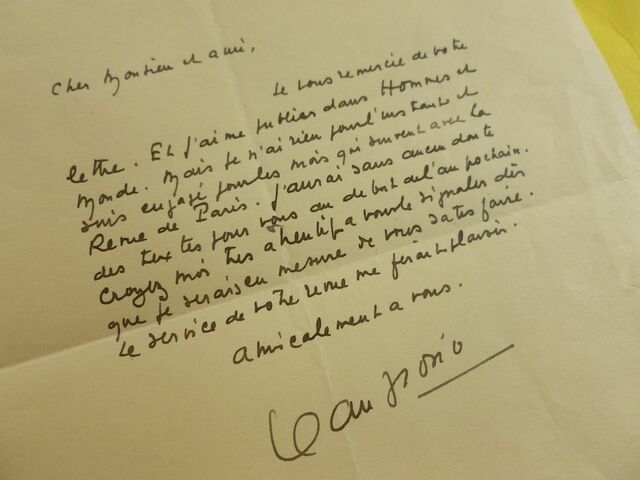 Cher Monsieur et ami,
Je vous remercie de votre
lettre. Et j'aime publier dans Hommes et
Monde. Mais je n'ai rien pour l'instant et
suis engagé pour les mois qui suivent avec la
Revue de Paris. J'aurai sans aucun doute
des textes pour vous au début de l'an prochain.
Croyez moi très attentif à vous le signaler dès
que je serais en mesure de vous satisfaire.
Le service de votre revue me ferait plaisir.
Amicalement à vous.
Jean